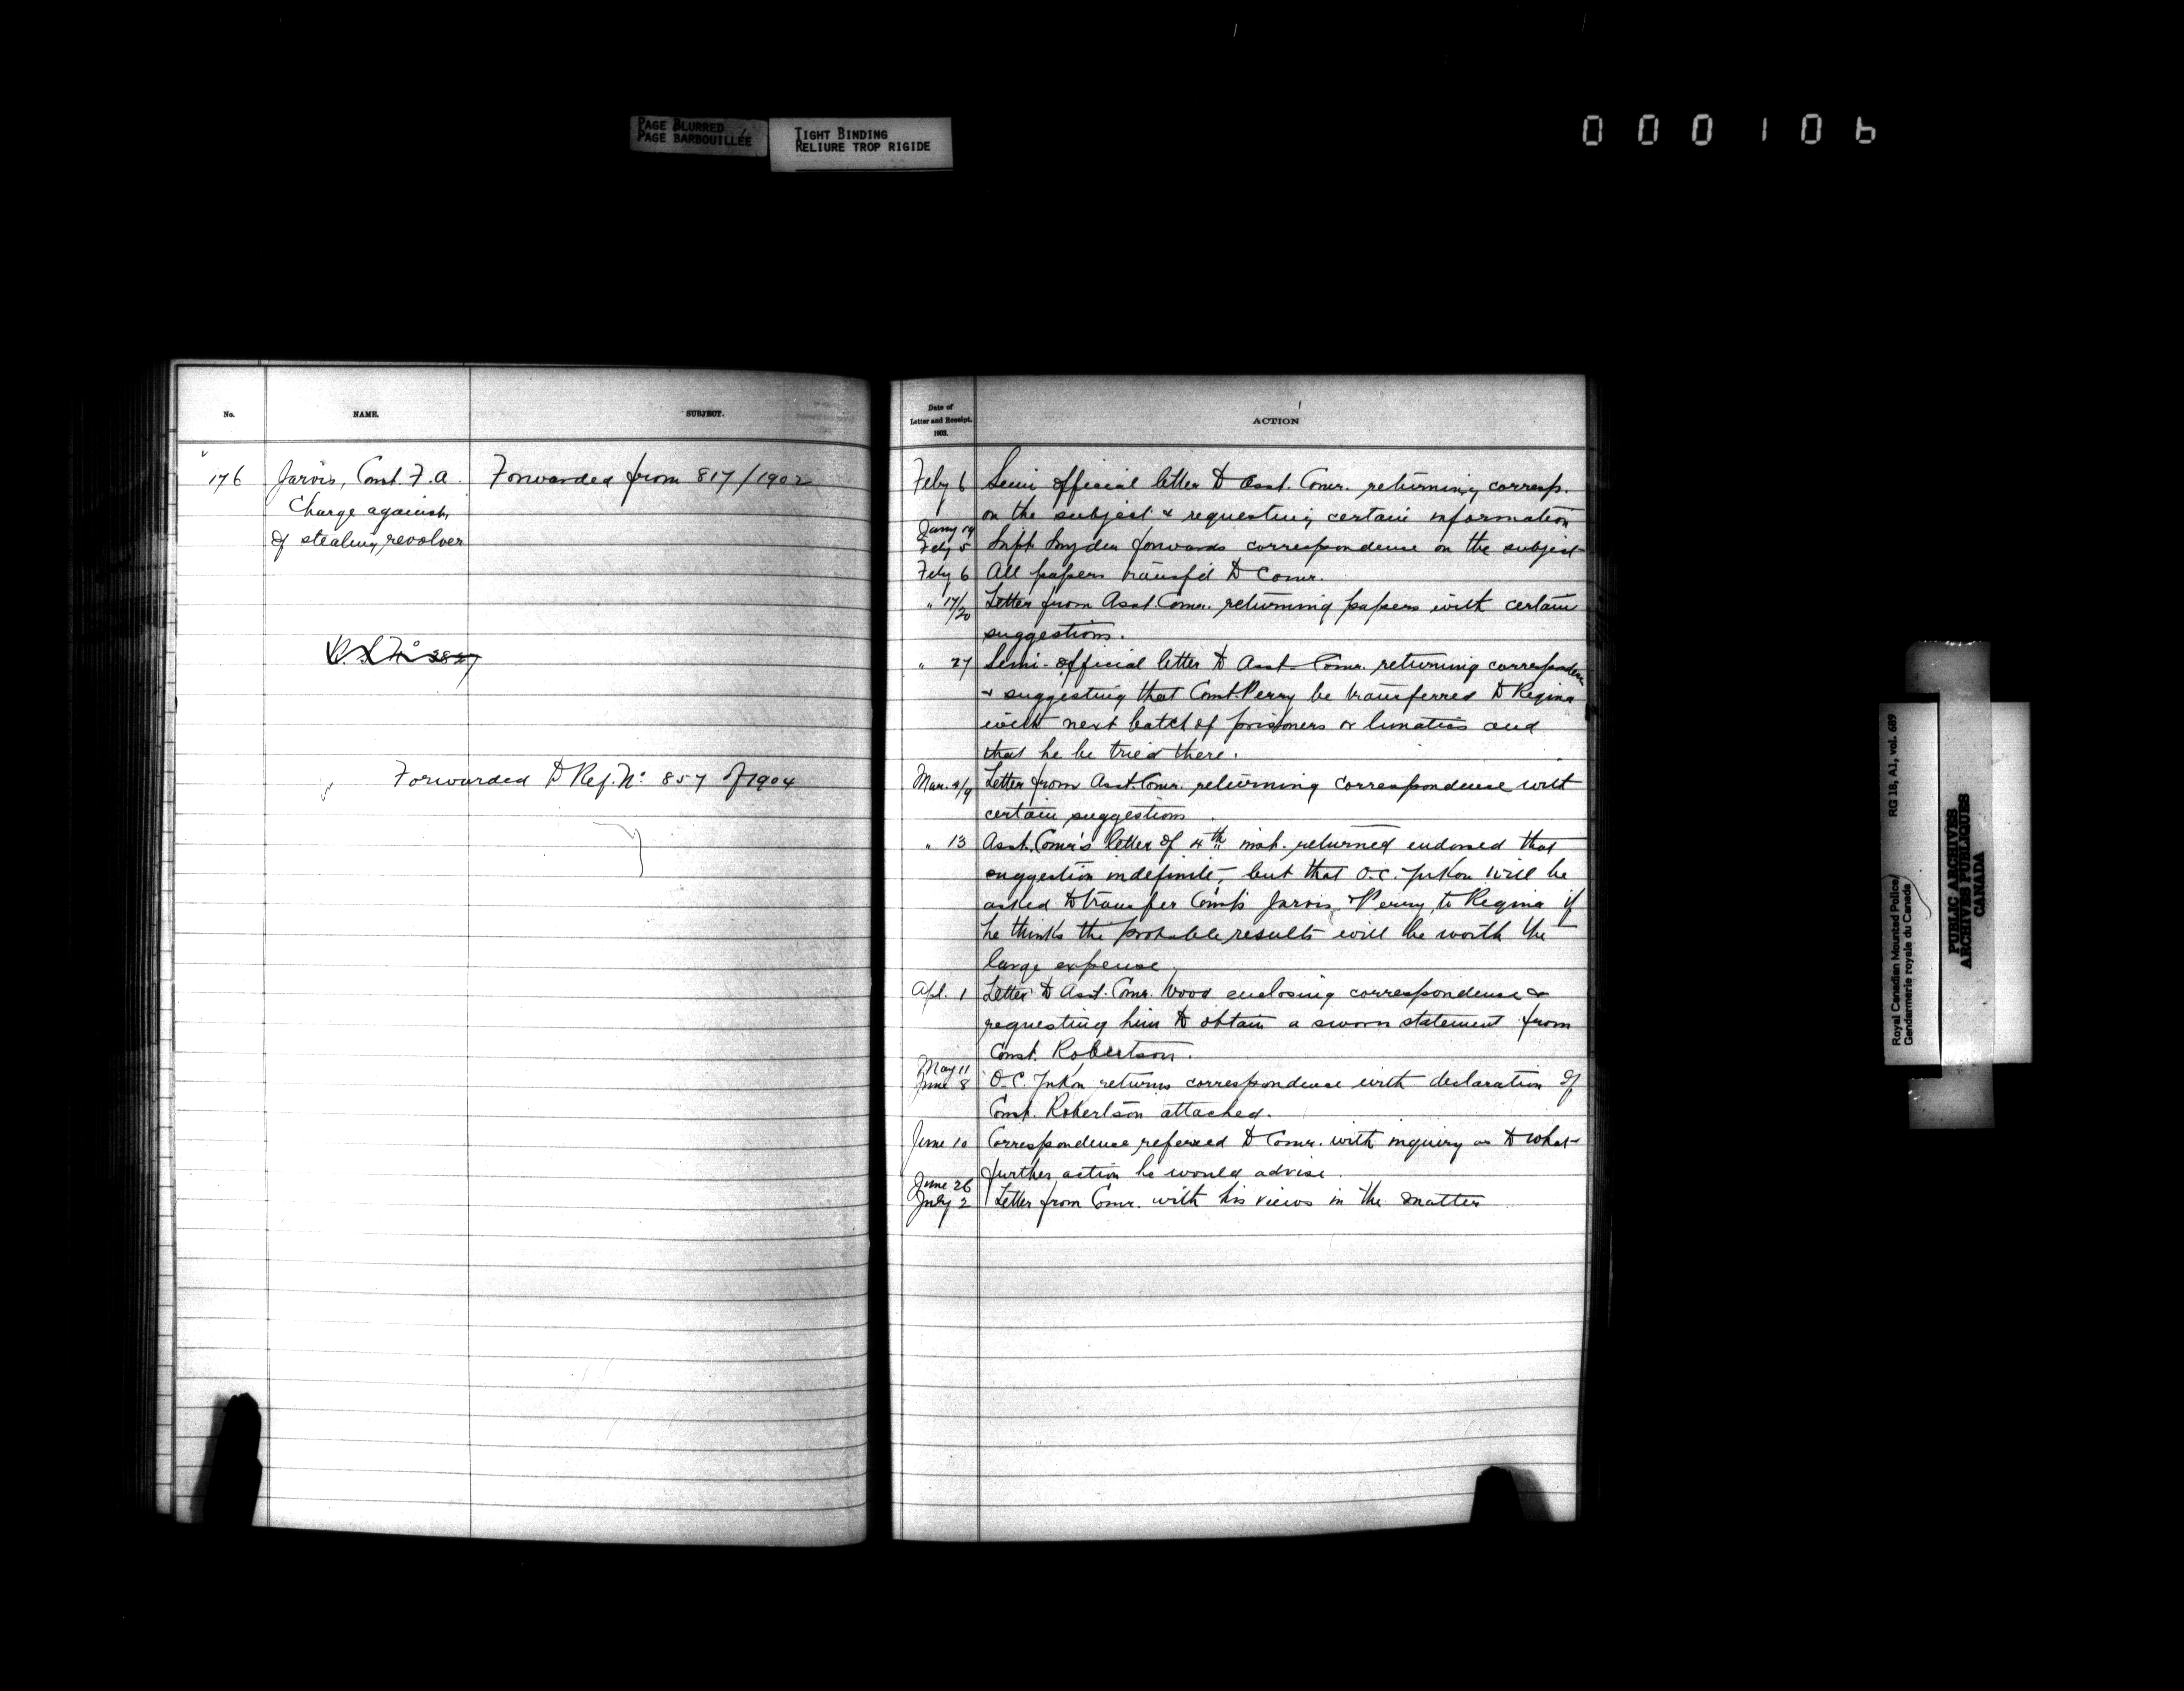 PAGE BLURRED
PAGE BARBOUILLÉE
TIGHT BINDING
RELIURE TROP RIGIDE
000106
No.
NAME.
SUBJECT.
176
Jarvis, Const. F. A.
Forwarded from 817/1902
Charge against,
of stealing revolver
Forwarded to Ref. No 857 of 1904
Date of
Letter and Receipt.
1903.
ACTION
Feby 6 Semi official letter to Asst. Comr. returning corresp.
on the subject & requesting certain information
Jany 19
Feby 5 Supt. Snyder forwards correspondence on the subject
Feby 6 All papers transf'd to Comr.
" 17/20 Letter from Asst. Comr. returning papers with certain
suggestions.
" 27 Semi-official letter to Asst. Comr. returning correspondence
& suggesting that Const. Perry be transferred to Regina
with next batch of prisoners or lunatics and
that he be tried there.
Mar. 4/9 Letter from Asst. Comr. returning correspondence with
certain suggestions.
" 13 Asst. Comr's letter of 4th inst. returned endorsed that
suggestion indefinite, but that O.C. Yukon will be
asked to transfer Consts Jarvis & Perry to Regina if
he thinks the probable results will be worth the
large expense.
Apl. 1 Letter to Asst. Comr. Wood enclosing correspondence &
requesting him to obtain a sworn statement from
Const. Robertson.
May 11
June 8 O.C. Yukon returns correspondence with declaration of
Const. Robertson attached.
June 10 Correspondence referred to Comr. with inquiry as to what
further action he would advise.
June 26
July 2 Letter from Comr. with his views in the matter
Royal Canadian Mounted Police/
Gendarmerie royale du Canada
RG 18, A1, vol. 689
PUBLIC ARCHIVES
ARCHIVES PUBLIQUES
CANADA